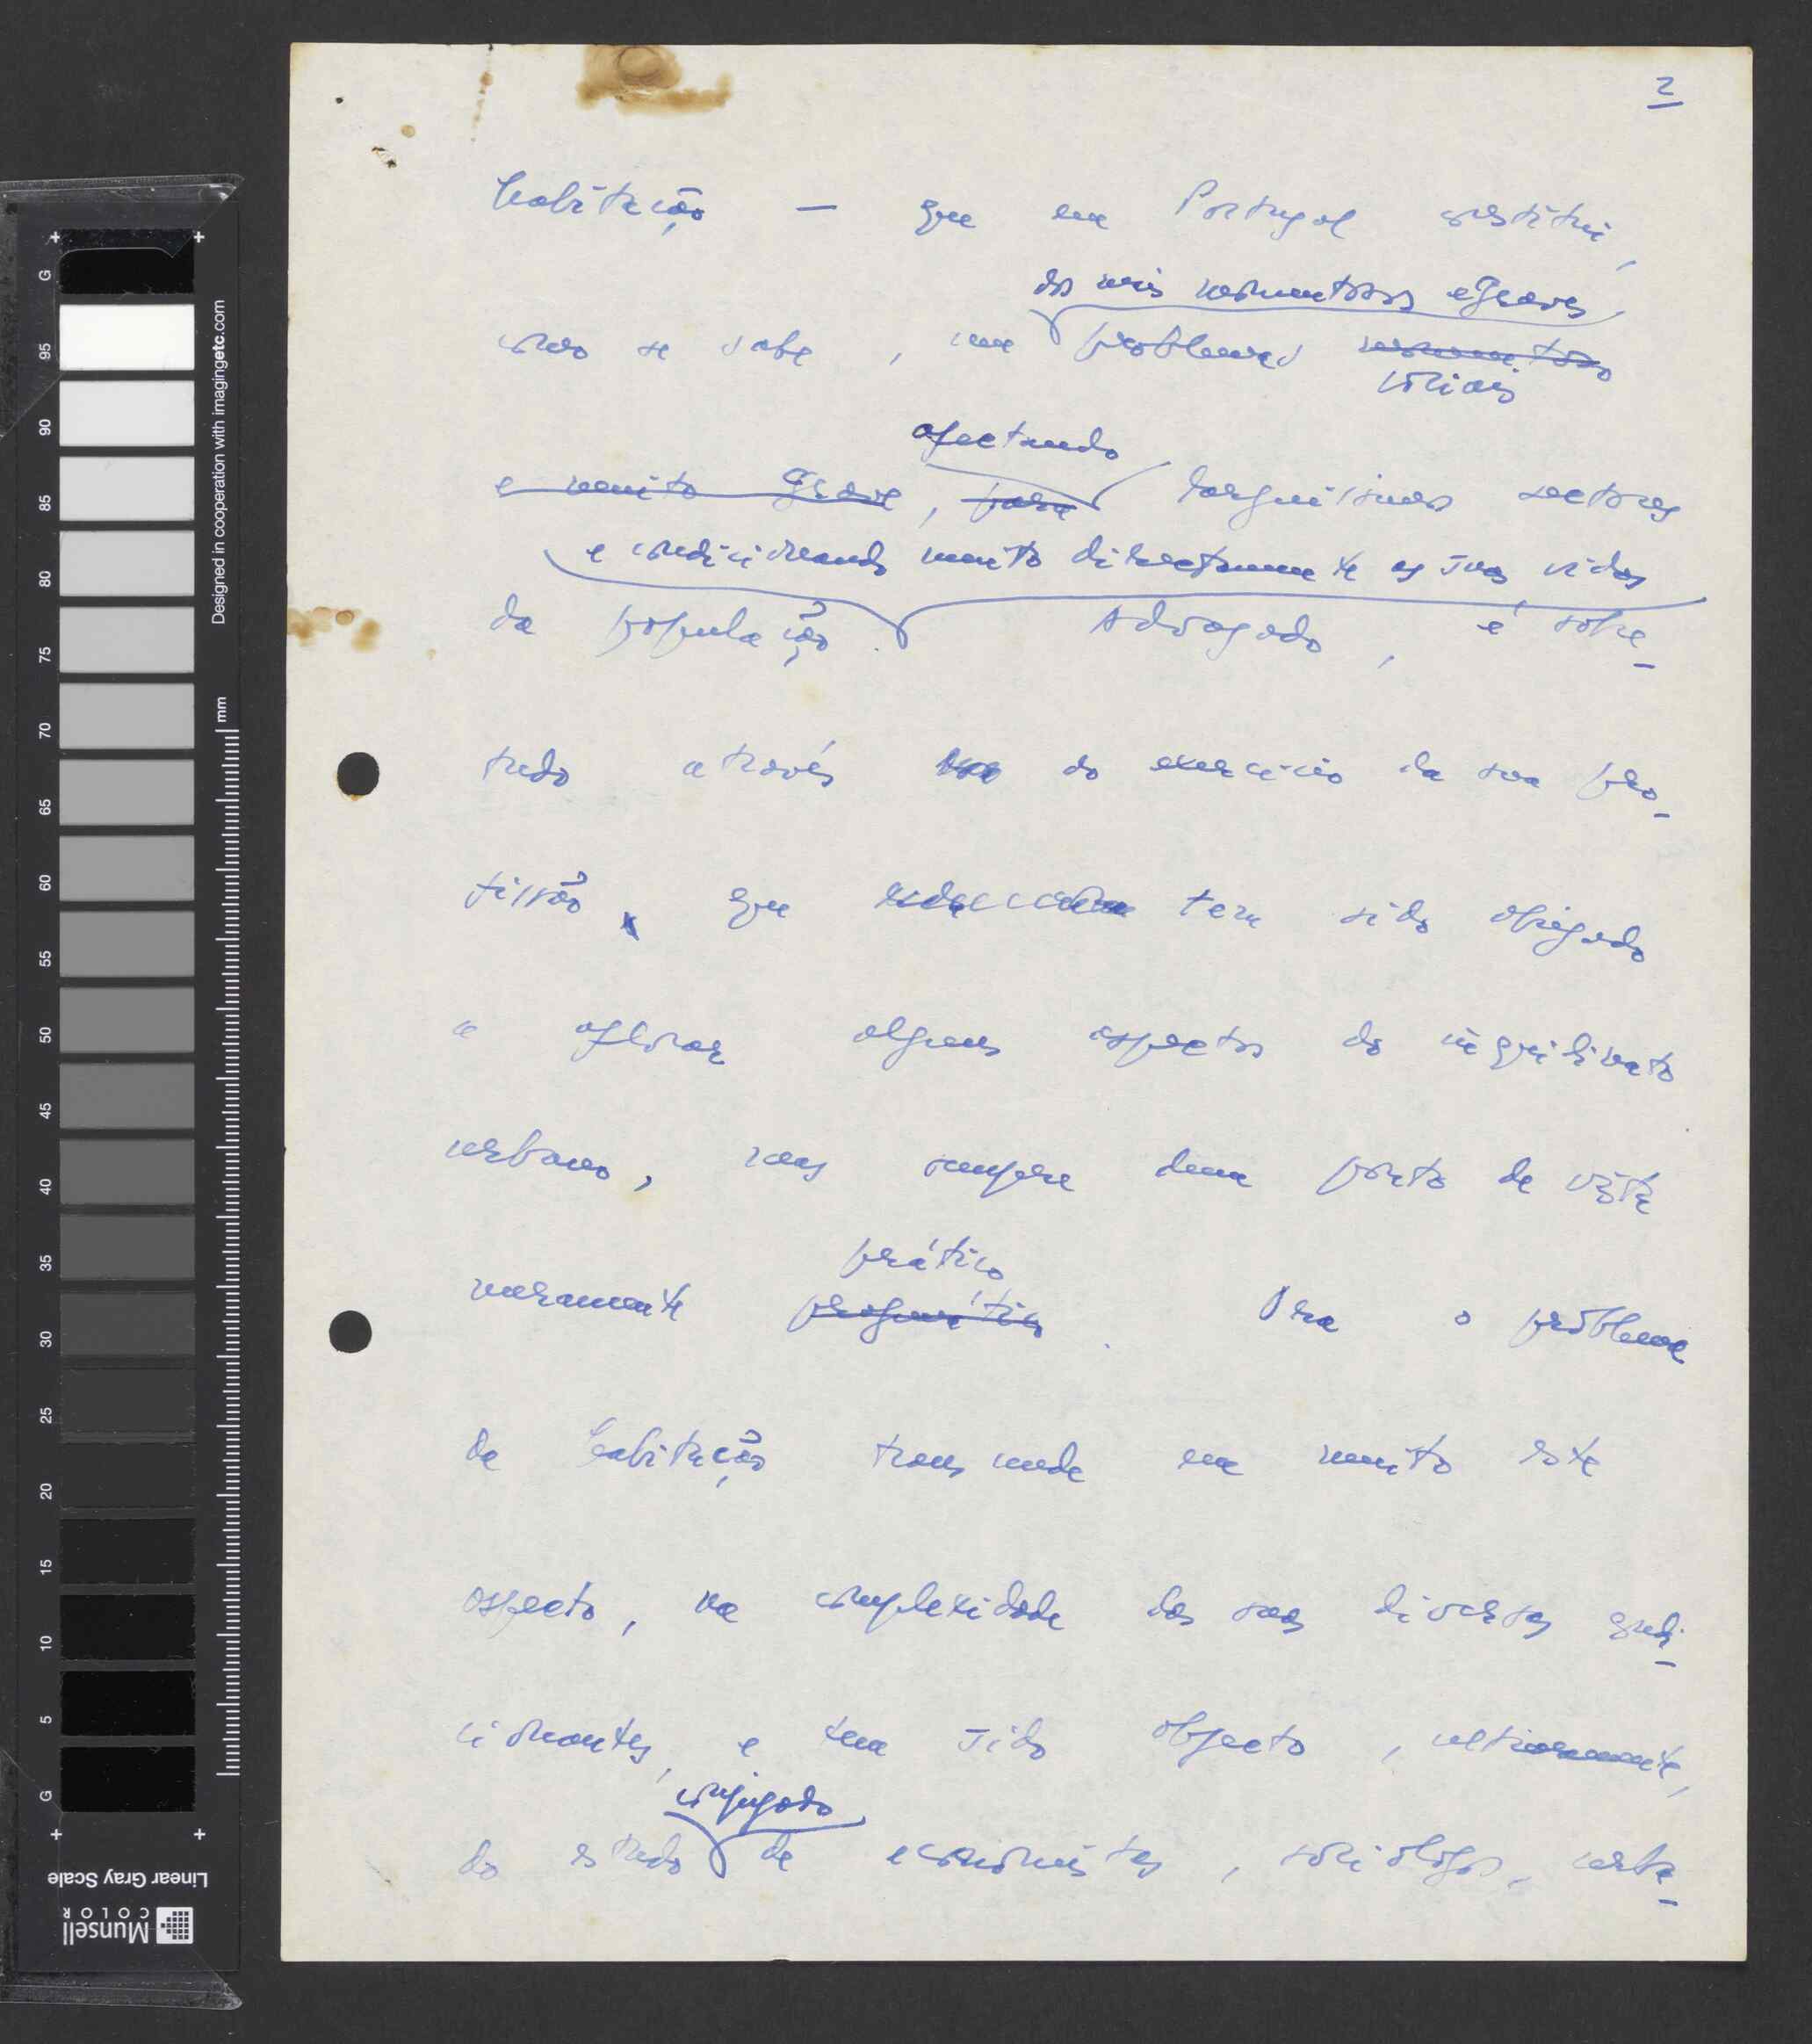 2
habitação — que em Portugal constitui,
dos mais momentosos e graves
como se sabe, um problemas momentoso
sociais
afectando
e muito grave, para larguíssimos sectores
e condicionando muito directamente as suas vidas
da população. Advogado, é sobre-
tudo através do exercício da sua pro-
fissão, que tem sido obrigado
a aflorar alguns aspectos do inquilinato
urbano, mas sempre dum ponto de vista
prático
meramente pragmático. Ora o problema
da habitação transcende em muito este
aspecto, na complexidade das suas diversas condi-
cionantes, e tem sido objecto, ultimamente,
conjugado
do estudo de economistas, sociólogos, urba-
G
95
90
85
80
75
70
65
60
55
50
45
40
35
30
25
20
15
10
5
G
mm
Designed in cooperation with imagingetc.com
Linear Gray Scale
Munsell
COLOR